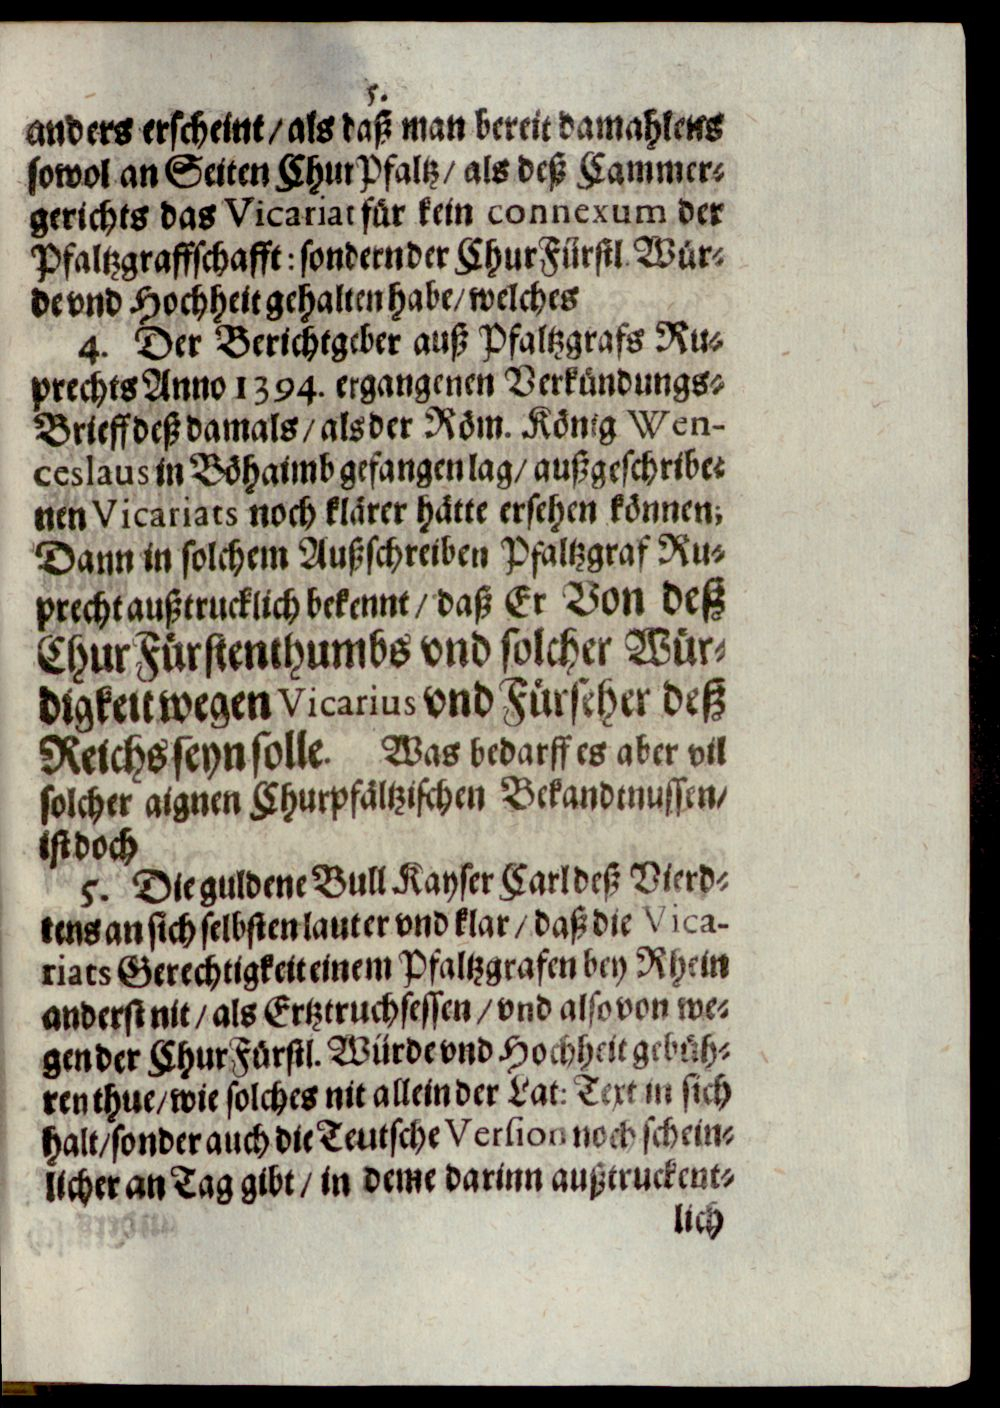 5.
anders erscheint / als daß man bereit damahlens
sowol an Seiten ChurPfaltz / als deß Cammer⸗
gerichts das Vicariat für kein connexum der
Pfaltzgraffschafft: sondern der ChurFürstl. Wür⸗
de vnd Hochheit gehalten habe / welches
4. Der Berichtgeber auß Pfaltzgrafs Ru⸗
prechts Anno 1394. ergangenen Verkündungs⸗
Brieff deß damals / als der Röm. König Wen-
ceslaus in Böhaimb gefangen lag / außgeschribe⸗
nen Vicariats noch klärer hätte ersehen können;
Dann in solchem Außschreiben Pfaltzgraf Ru⸗
precht außtrucklich bekennt / daß Er Von deß
ChurFürstenthumbs vnd solcher Wür⸗
digkeit wegen Vicarius vnd Fürseher deß
Reichs seyn solle. Was bedarff es aber vil
solcher aignen Churpfältzischen Bekandtnussen /
ist doch
5. Die guldene Bull Kayser Carl deß Vierd⸗
tens an sich selbsten lauter vnd klar / daß die Vica-
riats Gerechtigkeit einem Pfaltzgrafen bey Rhein
anderst nit / als Ertztruchsessen / vnd also von we⸗
gen der ChurFürstl. Würde vnd Hochheit gebüh⸗
ren thue / wie solches nit allein der Lat: Text in sich
halt / sonder auch die Teutsche Version noch schein⸗
licher an Tag gibt / in deme darinn außtruckent⸗
lich